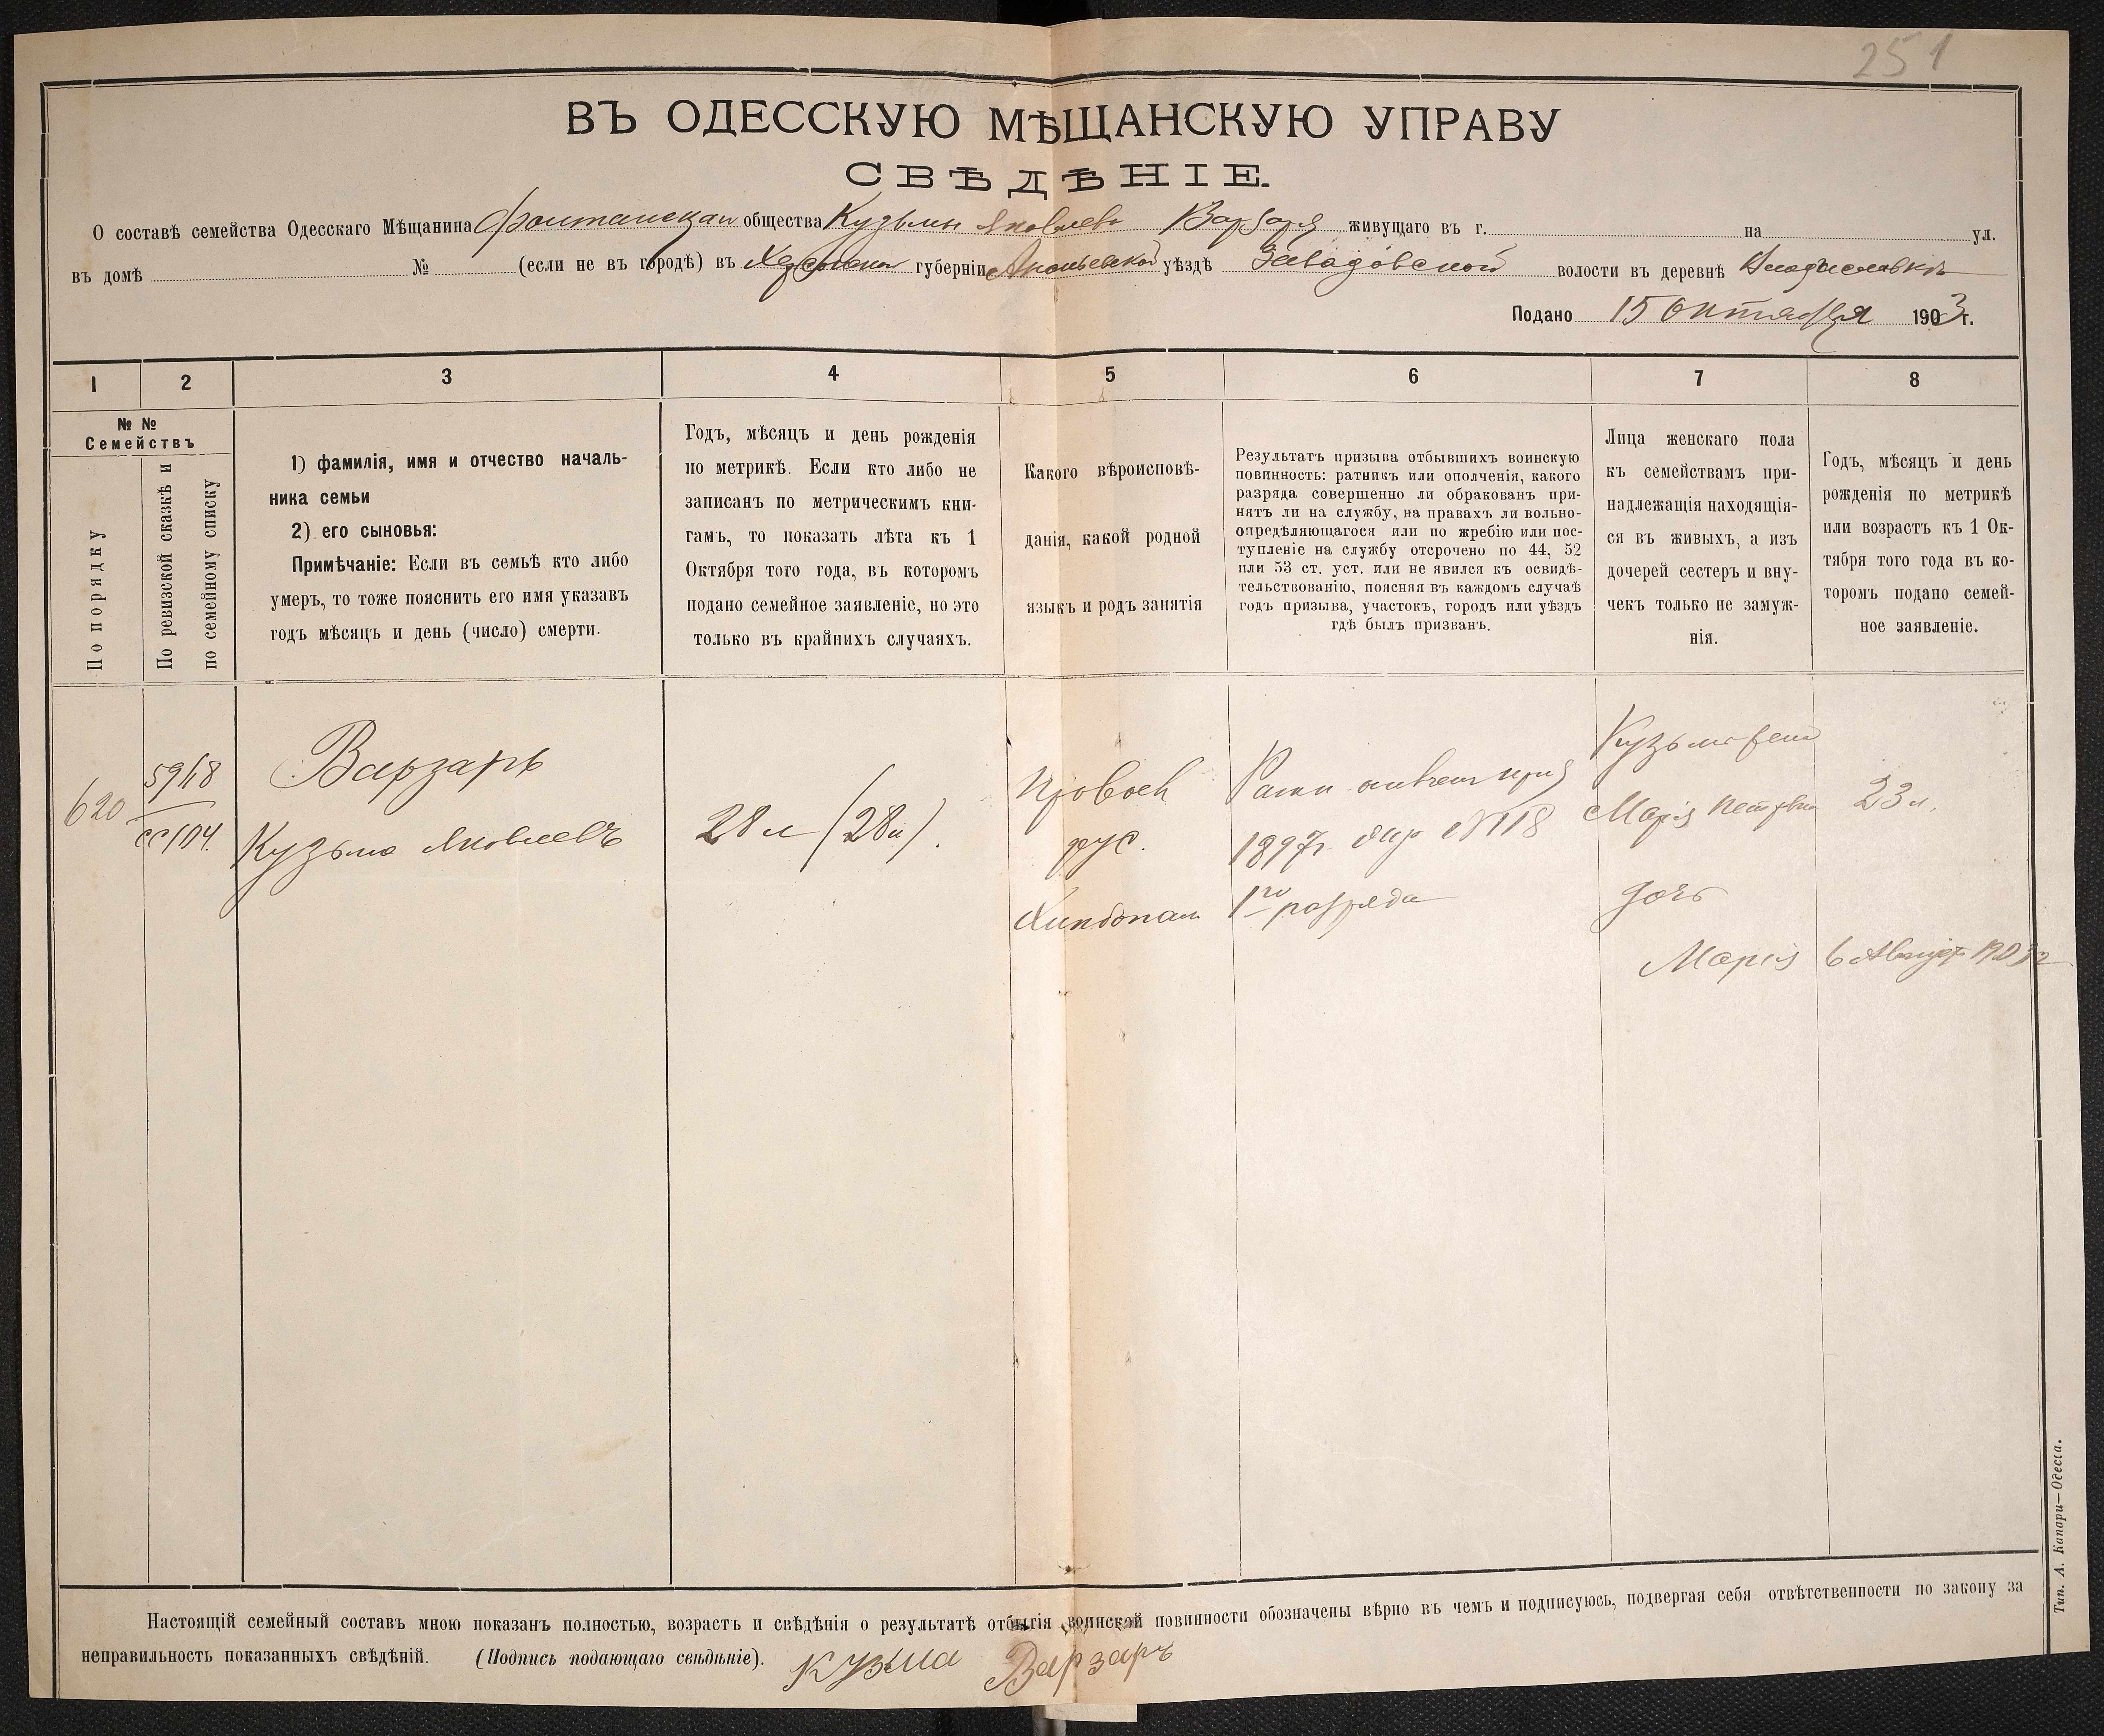 251
ВЪ ОДЕССКУЮ МѢЩАНСКУЮ УПРАВУ
СВѢДѢНІЕ.
О составѣ семейства Одесскаго Мѣщанина Фонтанскаи общества Кузьмы Яковлева Варзаря живущаго въ г. на ул.
въ домѣ № (если не въ городѣ) въ Херсонской губерніи Ананьевской уѣздѣ Завадовской волости въ деревнѣ Владиславкѣ
Подано 15 Октября 1903 г.
1 2 3 4 5 6 7 8
№ №
Семействъ
По порядку
По ревизской сказкѣ и
по семейному списку
1) фамилія, имя и отчество началь-
ника семьи
2) его сыновья:
Примѣчаніе: Если въ семьѣ кто либо
умеръ, то тоже пояснить его имя указавъ
годъ мѣсяцъ и день (число) смерти.
Годъ, мѣсяцъ и день рожденія
по метрикѣ. Если кто либо не
записанъ по метрическимъ кни-
гамъ, то показать лѣта къ 1
Октября того года, въ которомъ
подано семейное заявленіе, но это
только въ крайнихъ случаяхъ.
Какого вѣроисповѣ-
данія, какой родной
языкъ и родъ занятія
Результатъ призыва отбывшихъ воинскую
повинность: ратникъ или ополченія, какого
разряда совершенно ли обракованъ при-
нятъ ли на службу, на правахъ ли вольно-
опредѣляющагося или по жребію или пос-
тупленіе на службу отсрочено по 44, 52
или 53 ст. уст. или не явился къ освидѣ-
тельствованію, поясняя въ каждомъ случаѣ
годъ призыва, участокъ, городъ или уѣздъ
гдѣ былъ призванъ.
Лица женскаго пола
къ семействамъ при-
надлежащія находящія-
ся въ живыхъ, а изъ
дочерей сестеръ и вну-
чекъ только не замуж-
нія.
Годъ, мѣсяцъ и день
рожденія по метрикѣ
или возрастъ къ 1 Ок-
тября того года въ ко-
торомъ подано семей-
ное заявленіе.
620
5918
сс/104.
Варзарь
Кузьма Яковлевъ
28 л (28 л).
Правосл
рус.
Хлибопаш
Ратн
1897г. №118
1го разряда
Кузьмы жена
Марія Петрвна 23 л.
дочь
Марія 6 Август 1903г
Настоящій семейный составъ мною показанъ полностью, возрастъ и свѣдѣнія о результатѣ отбытія воинской повинности обозначены вѣрно въ чемъ и подписуюсь, подвергая себя отвѣтственности по закону за
неправильность показанныхъ свѣдѣній. (Подпись подающаго свѣдѣніе). Кузма Варзаръ
Тип. А. Капари—Одесса.